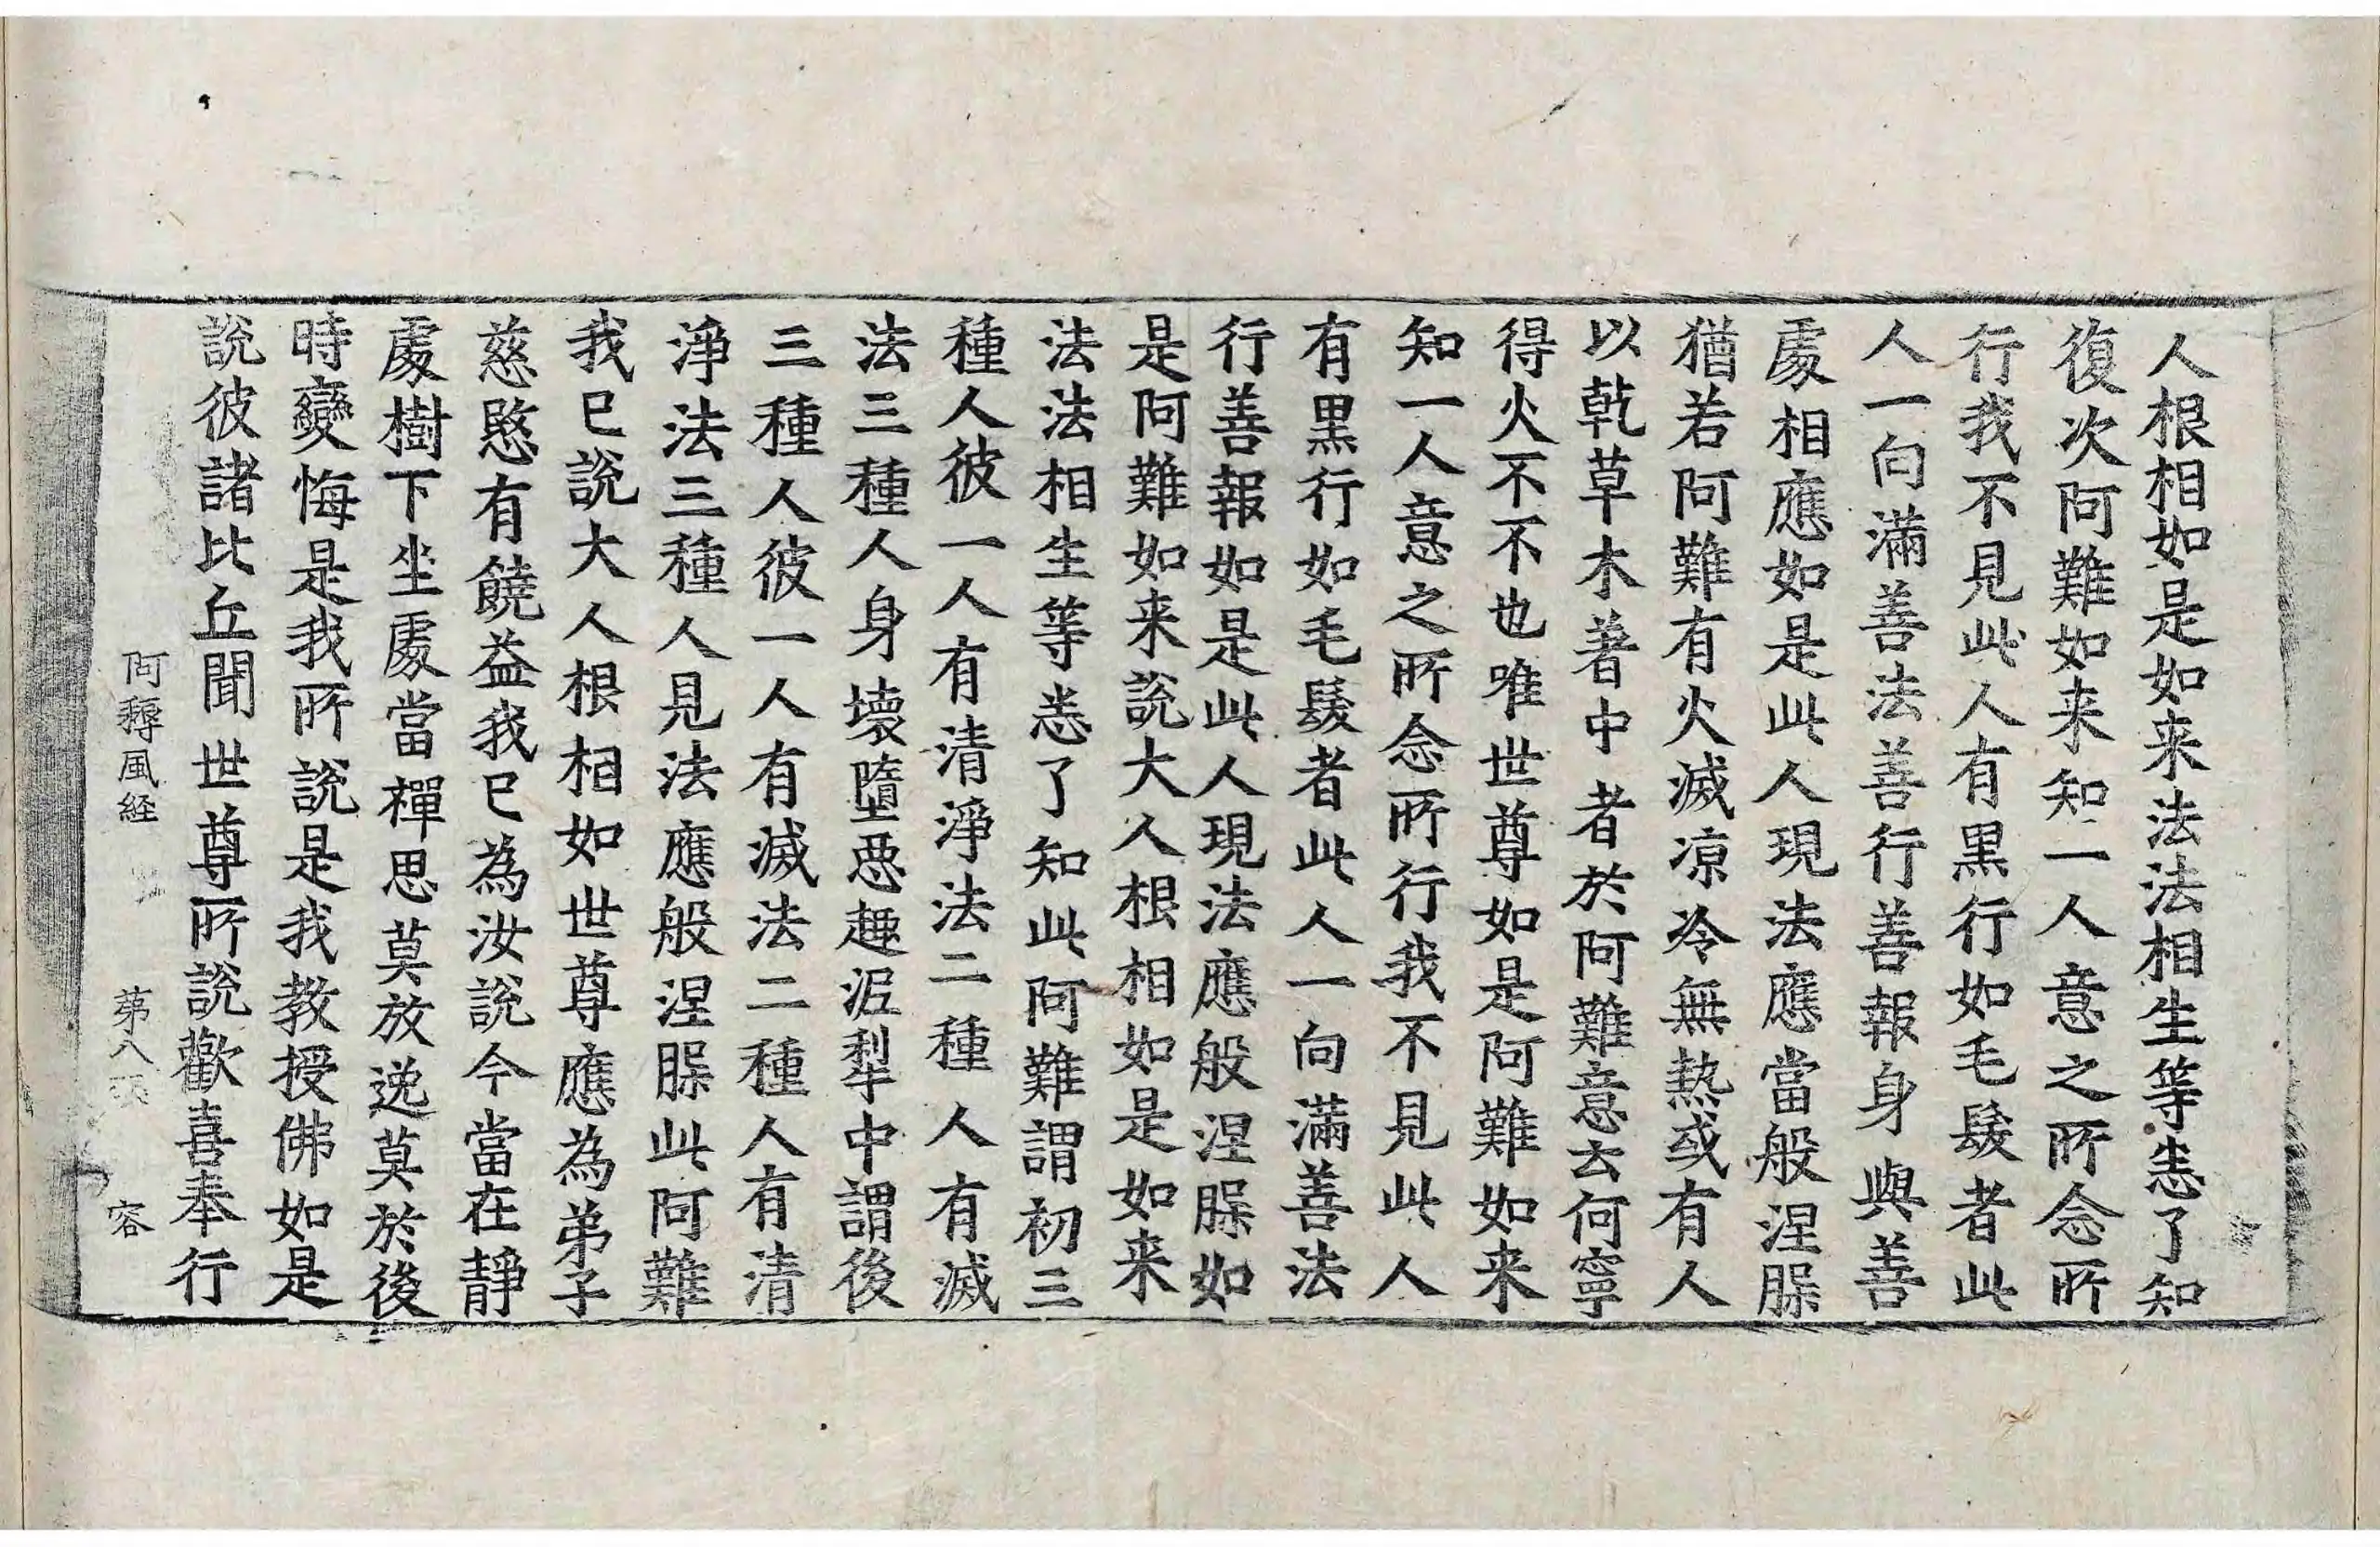 人根相如是如来法法相生等恚了知
復次阿難如来知一人意之所念所
行我不見此人有黒行如毛髮者此
人一向滿善法善行善報身與善
處相應如是此人現法應當般涅脲
猶若阿難有火滅凉冷無熱或有人
以乾草木著中者於阿難意云何寧
得火不不也唯世尊如是阿難如来
知一人意之所念所行我不見此人
有黒行如毛髮者此人一向滿善法
行善報如是此人現法應般涅脲如
是阿難如来說大人根相如是如来
法法相生等恚了知此阿難謂初三
種人彼一人有清淨法二種人有滅
法三種人身壊墮惡趣泥犁中謂後
三種人彼一人有滅法二種人有清
淨法三種人見法應般涅脲此阿難
我已說大人根相如世尊應為弟子
慈愍有饒益我已為汝說今當在靜
處樹下坐處當禪思莫放逸莫於後
時變悔是我所說是我教授佛如是
說彼諸比丘聞世尊所說歡喜奉行
阿耨風経 第八張 容